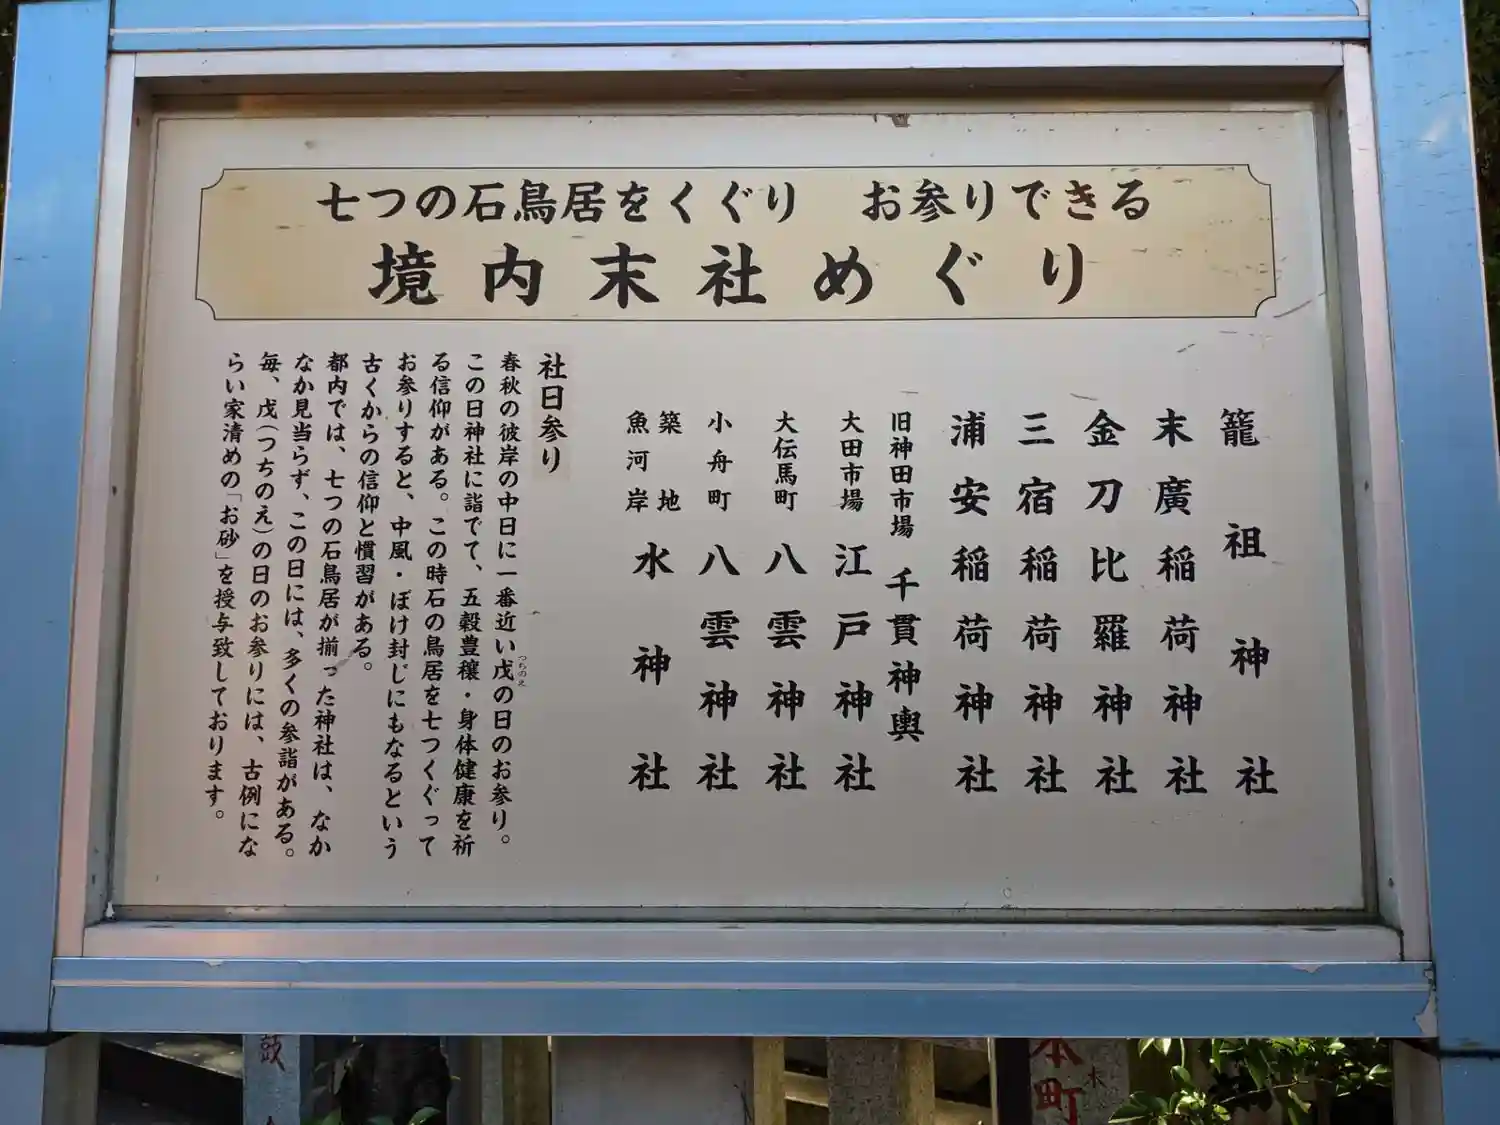 七つの石鳥居をくぐり　お参りできる
境内末社めぐり
籠祖神社
末廣稲荷神社
金刀比羅神社
三宿稲荷神社
浦安稲荷神社
旧神田市場　千貫神輿
大田市場　江戸神社
大伝馬町　八雲神社
小舟町　八雲神社
築地
魚河岸　水神社
社日参り
春秋の彼岸の中日に一番近い戊の日のお参り。
つちのえ
この日神社に詣でて、五穀豊穣・身体健康を祈
る信仰がある。この時石の鳥居を七つくぐって
お参りすると、中風・ぼけ封じにもなるという
古くからの信仰と慣習がある。
都内では、七つの石鳥居が揃った神社は、なか
なか見当らず、この日には、多くの参詣がある。
毎、戊(つちのえ)の日のお参りには、古例にな
らい家清めの「お砂」を授与致しております。
鼓
本町